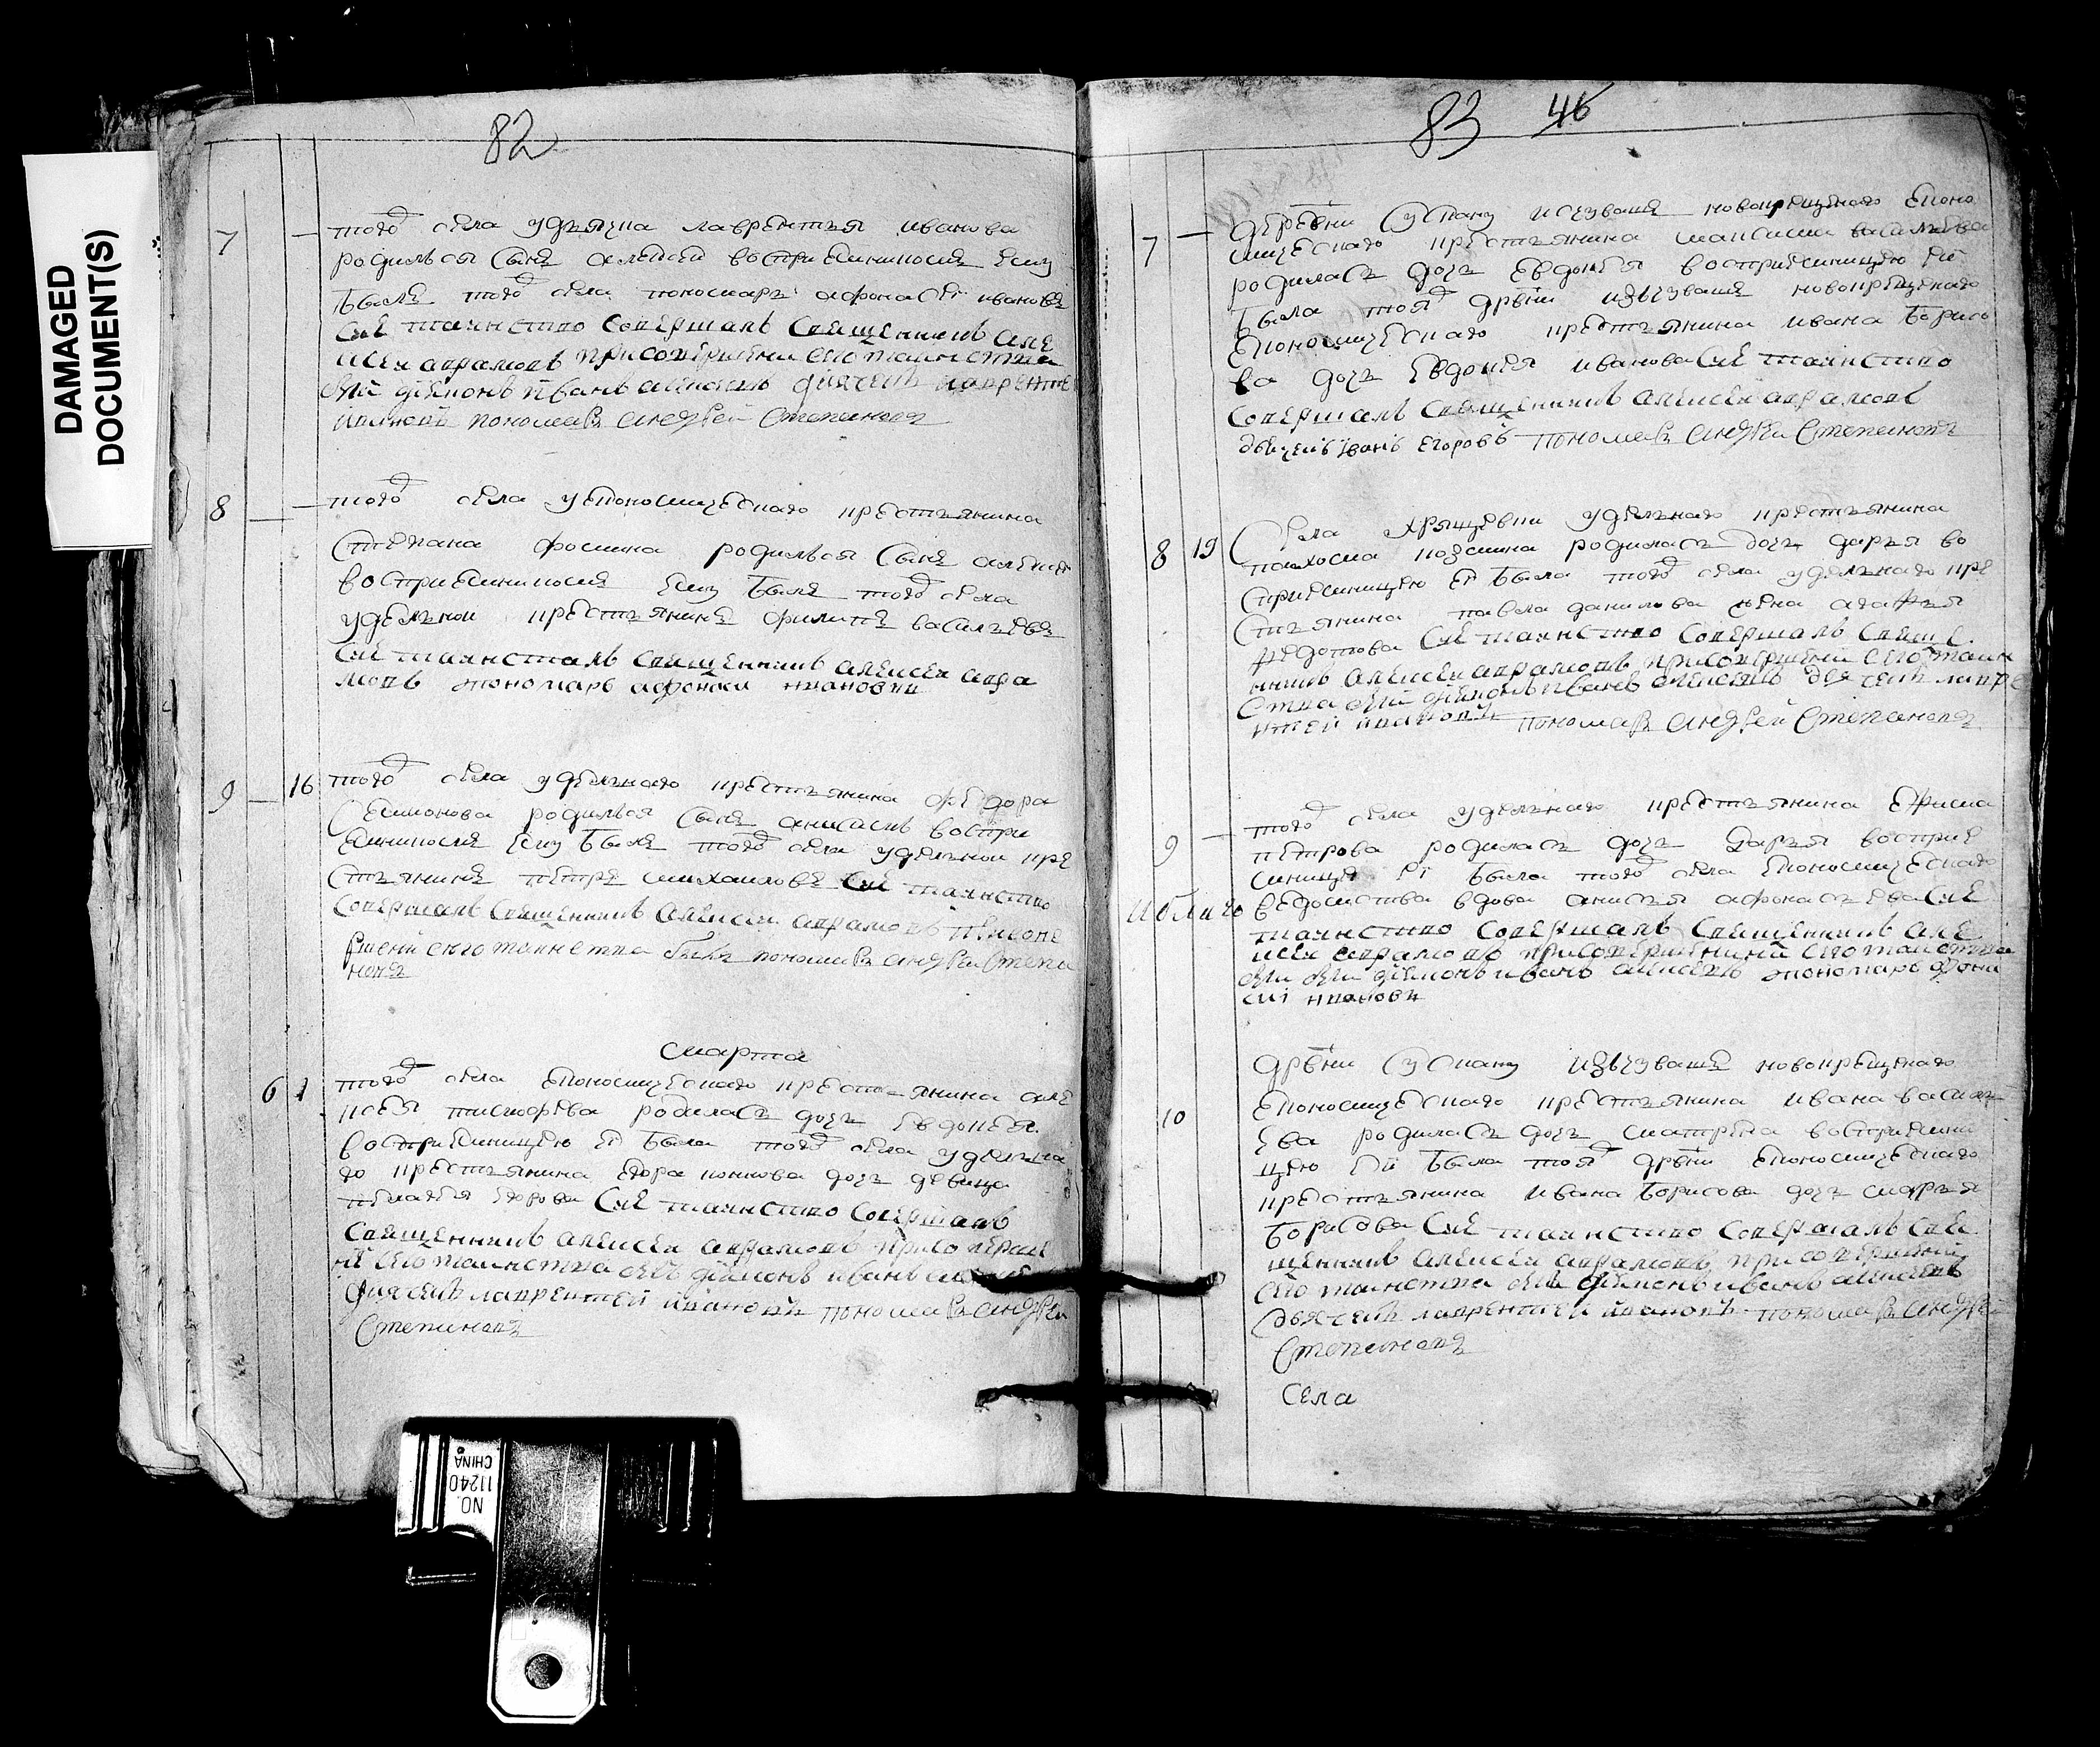 DAMAGED
DOCUMENT(S)
82
7
того села удьячка лаврентья иванова
родился сынъ алексей восприемникомъ ему
былъ того села пономарь афонасеи ивановъ
сие таинство совершалъ священникъ але
ксеи аврамовъ присовершени сего таинства
были диаконъ иванъ алексеевъ дьячекъ лавренте
ивановъ пономарь андрей степановъ
8
того села у економическаго крестьянина
степана фомина родился сынъ алексеи
восприемникомъ ему былъ того села
удельнои крестьянинъ филипъ василъевъ
сие таинсталъ священникъ алексеи авра
мовъ пономарь афонасеи ивановъ
9 16
того села удельнаго крестьянина федора
семионова родился сынъ анисимъ воспри
емникомъ ему былъ того села удельнои кре
стьянинъ петръ михаиловъ сие таинство
совершалъ священникъ алексеи аврамовъ присове
ршени сего таинства былъ пономарь андреи степа
новъ
марта
6 1
того села економическаго крестьянина але
ксея тимофеева родиласъ дочь евдокея
восприемницею ей была того села удельна
го крестьянина егора дочь девица
пелагея егорова сие таинство совершалъ
священникъ алексеи аврамовъ присоверше
не сего таинства былъ диаконъ иванъ
дьячекъ лаврентей ивановъ пономарь андреи
степановъ
NO.
11240
CHINA
83 46
7
деревни сускану исчуваше новокрещенаго еконо
мическаго крестьянина максима васильева
родиласъ дочь евдокея восприемницею ей
была тоя дрвни изчуваше новокрещенаго
економическаго крестьянина ивана борисо
ва дочь евдокея иванова сие таинство
совершалъ священникъ алексеи аврамовъ
дьячекъ иванъ егоровъ пономарь андреи степановъ
8 19
села хрящевки удельнаго крестьянина
родиласъ дочь даръя во
сприемницею ей была того села удельнаго кре
стьянина павла данилова жена агафья
федотова сие таинство совершалъ свяще
нникъ алексеи аврамовъ присовершени сего таин
ства были диаконъ иванъ алексеевъ дьячекъ лавре
нтей ивановъ пономарь андрей степановъ
9
того села удельнаго крестьянина ефима
петрова родиласъ дочь даръя восприе
мница ей была того села економическаго
ведомства вдова анисья афонасьева сие
таинство совершалъ священникъ але
ксеи аврамовъ присовершении сего таинства
были диаконъ иванъ алексеевъ пономарь афона
сиі ивановъ
10
дрвни сускану изчуваше новокрещенаго
економическаго крестьянина ивана василь
ева родиласъ дочь матрена восприемни
цею ей была тоя дрвни економическаго
крестьянина ивана борисова дочь марья
борисова сие таинство совершалъ свя
щенникъ алексеи аврамовъ присовершени
сего таинства были диаконъ иванъ алексеевъ
дьячекъ лаврентей ивановъ пономарь андрей
степановъ
села